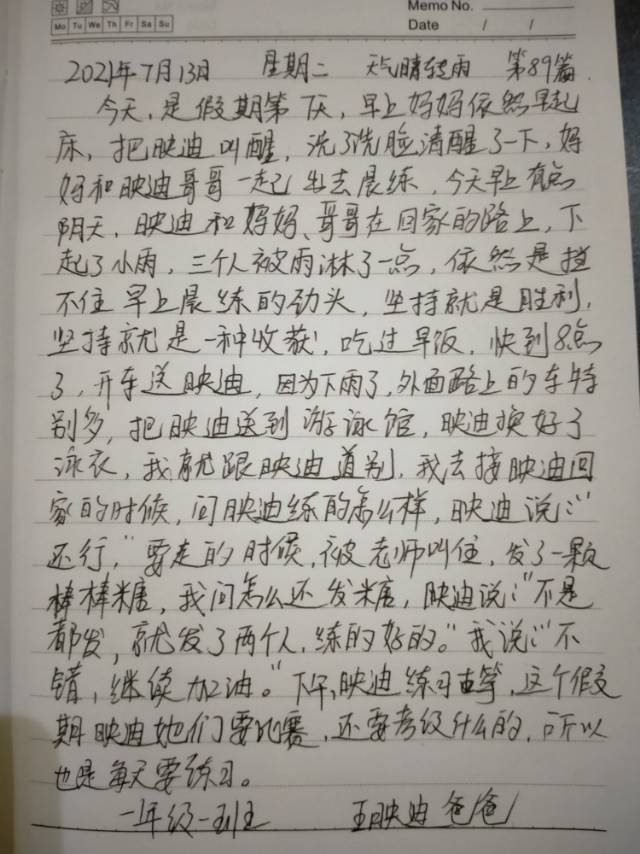 Memo No.
Mo Tu We Th Fr Sa Su
Date / /
2021年7月13日 星期二 天气晴转雨 第89篇
今天，是假期第 天，早上妈妈依然早起
床，把映迪叫醒，洗了洗脸清醒了一下，妈
妈和映迪哥哥一起出去晨练，今天早上有点
阴天，映迪和妈妈、哥哥在回家的路上，下
起了小雨，三个人被雨淋了一点，依然是挡
不住早上晨练的劲头，坚持就是胜利，
坚持就是一种收获，吃过早饭，快到8点
了，开车送映迪，因为下雨了，外面路上的车特
别多，把映迪送到游泳馆，映迪换好了
泳衣，我就跟映迪道别，我去接映迪回
家的时候，问映迪练的怎么样，映迪说：“
还行，”要走的时候，被老师叫住，发了一颗
棒棒糖，我问怎么还发糖，映迪说：“不是
都发，就发了两个人，练的好的。”我说：“不
错，继续加油。”下午，映迪练习古筝，这个假
期映迪她们要比赛，还要考级什么的，所以
也是每天要练习。
一年级一班 王映迪爸爸